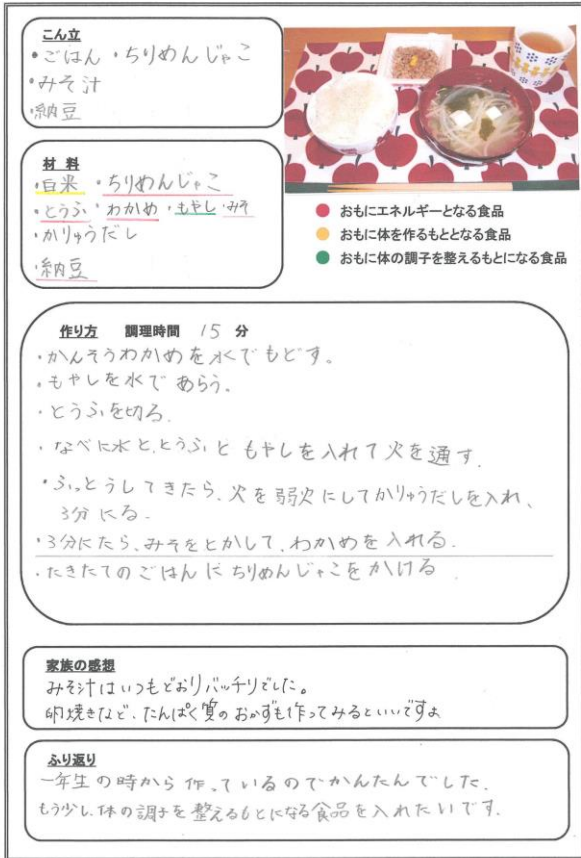 こん立
・ごはん ・ちりめんじゃこ
・みそ汁
・納豆
材料
・白米 ・ちりめんじゃこ
・とうふ ・わかめ ・もやし ・みそ
・かりゅうだし
・納豆
● おもにエネルギーとなる食品
● おもに体を作るもととなる食品
● おもに体の調子を整えるもとになる食品
作り方 調理時間 15 分
・かんそうわかめを水でもどす。
・もやしを水であらう。
・とうふを切る.
・なべに水と、とうふと もやしを入れて火を通す.
・ふっとうしてきたら、火を弱火にしてかりゅうだしを入れ、
3分にる.
・3分にたら、みそをとかして、わかめを入れる.
・たきたてのごはんにちりめんじゃこをかける
家族の感想
みそ汁はいつもどおりバッチリでした。
卵焼きなど、たんぱく質のおかずも作ってみるといいですよ
ふり返り
一年生の時から作っているのでかんたんでした.
もう少し、体の調子を整えるもとになる食品を入れたいです.